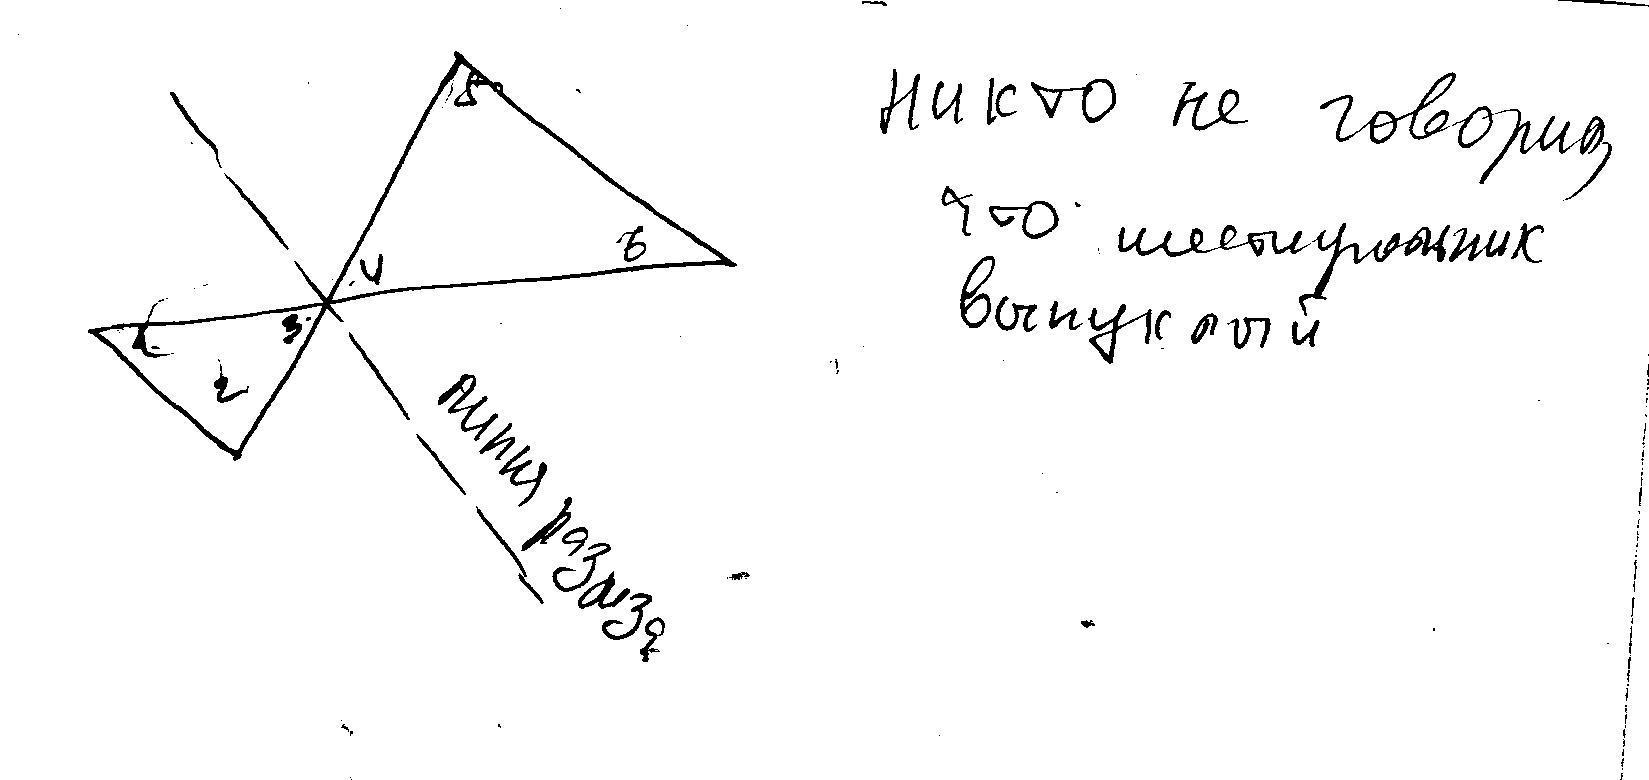 никто не говорил
что шестиугольник
выпуклый
5
6
4
1
3
2
линия разреза